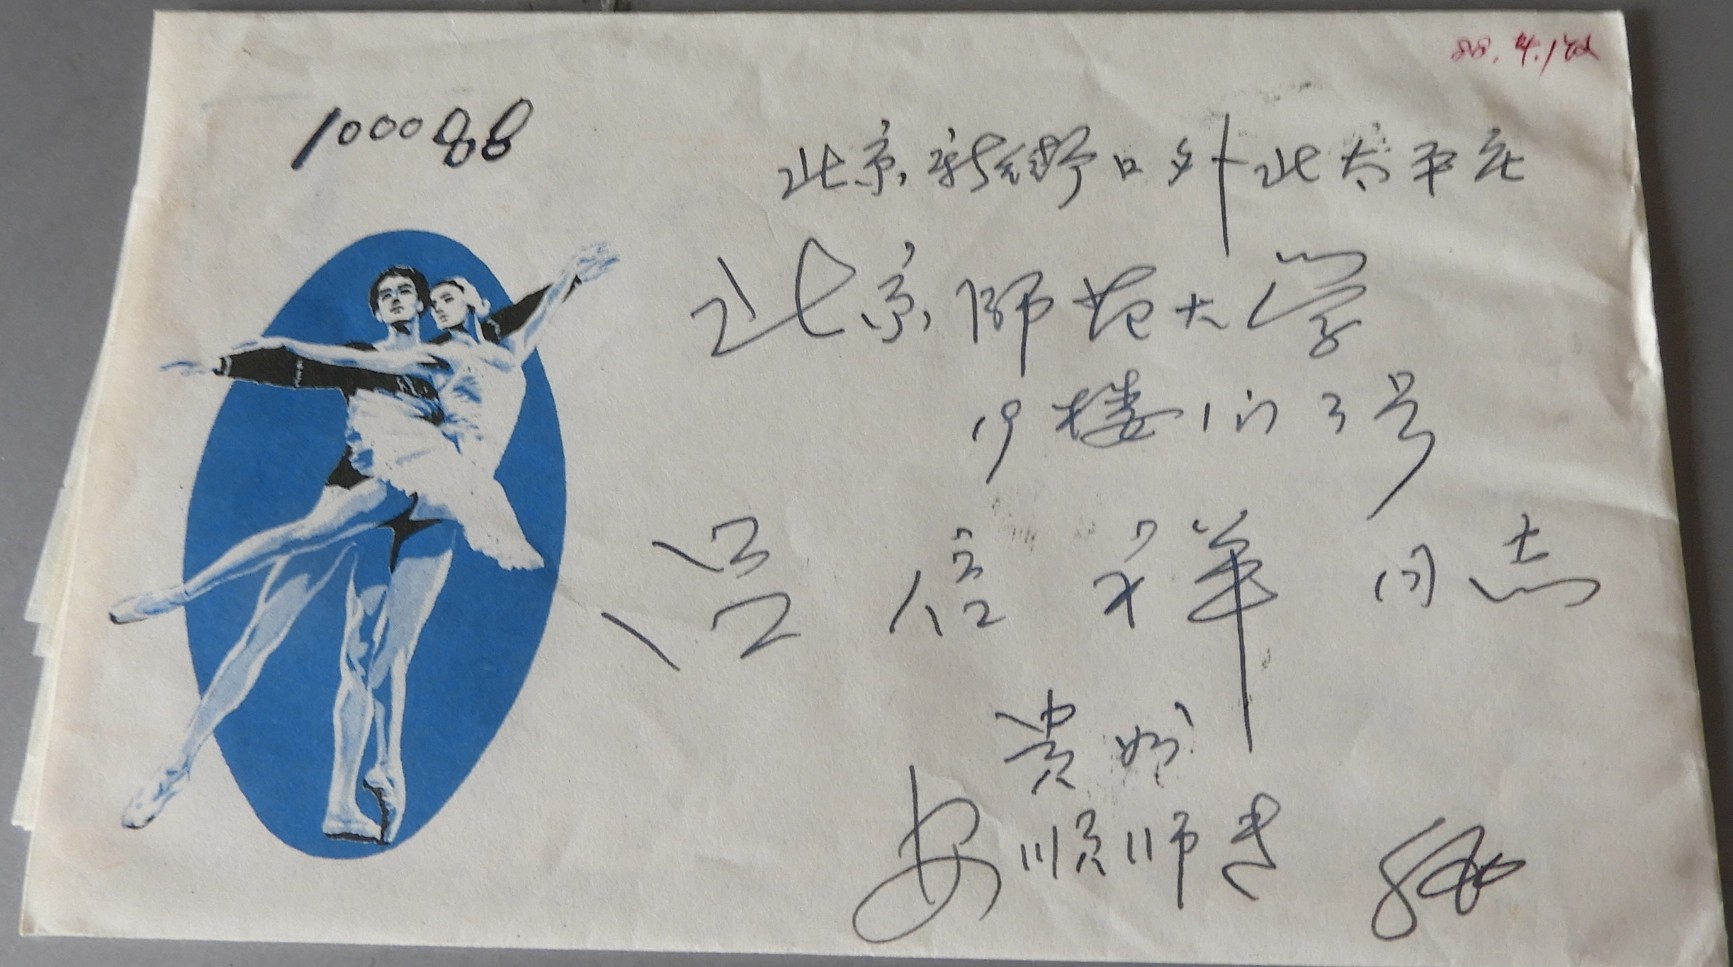 88.4.1收
100088
北京新街口外北太平庄
北京师范大学
19楼1门3号
吕信祥 同志
贵州
安顺师专